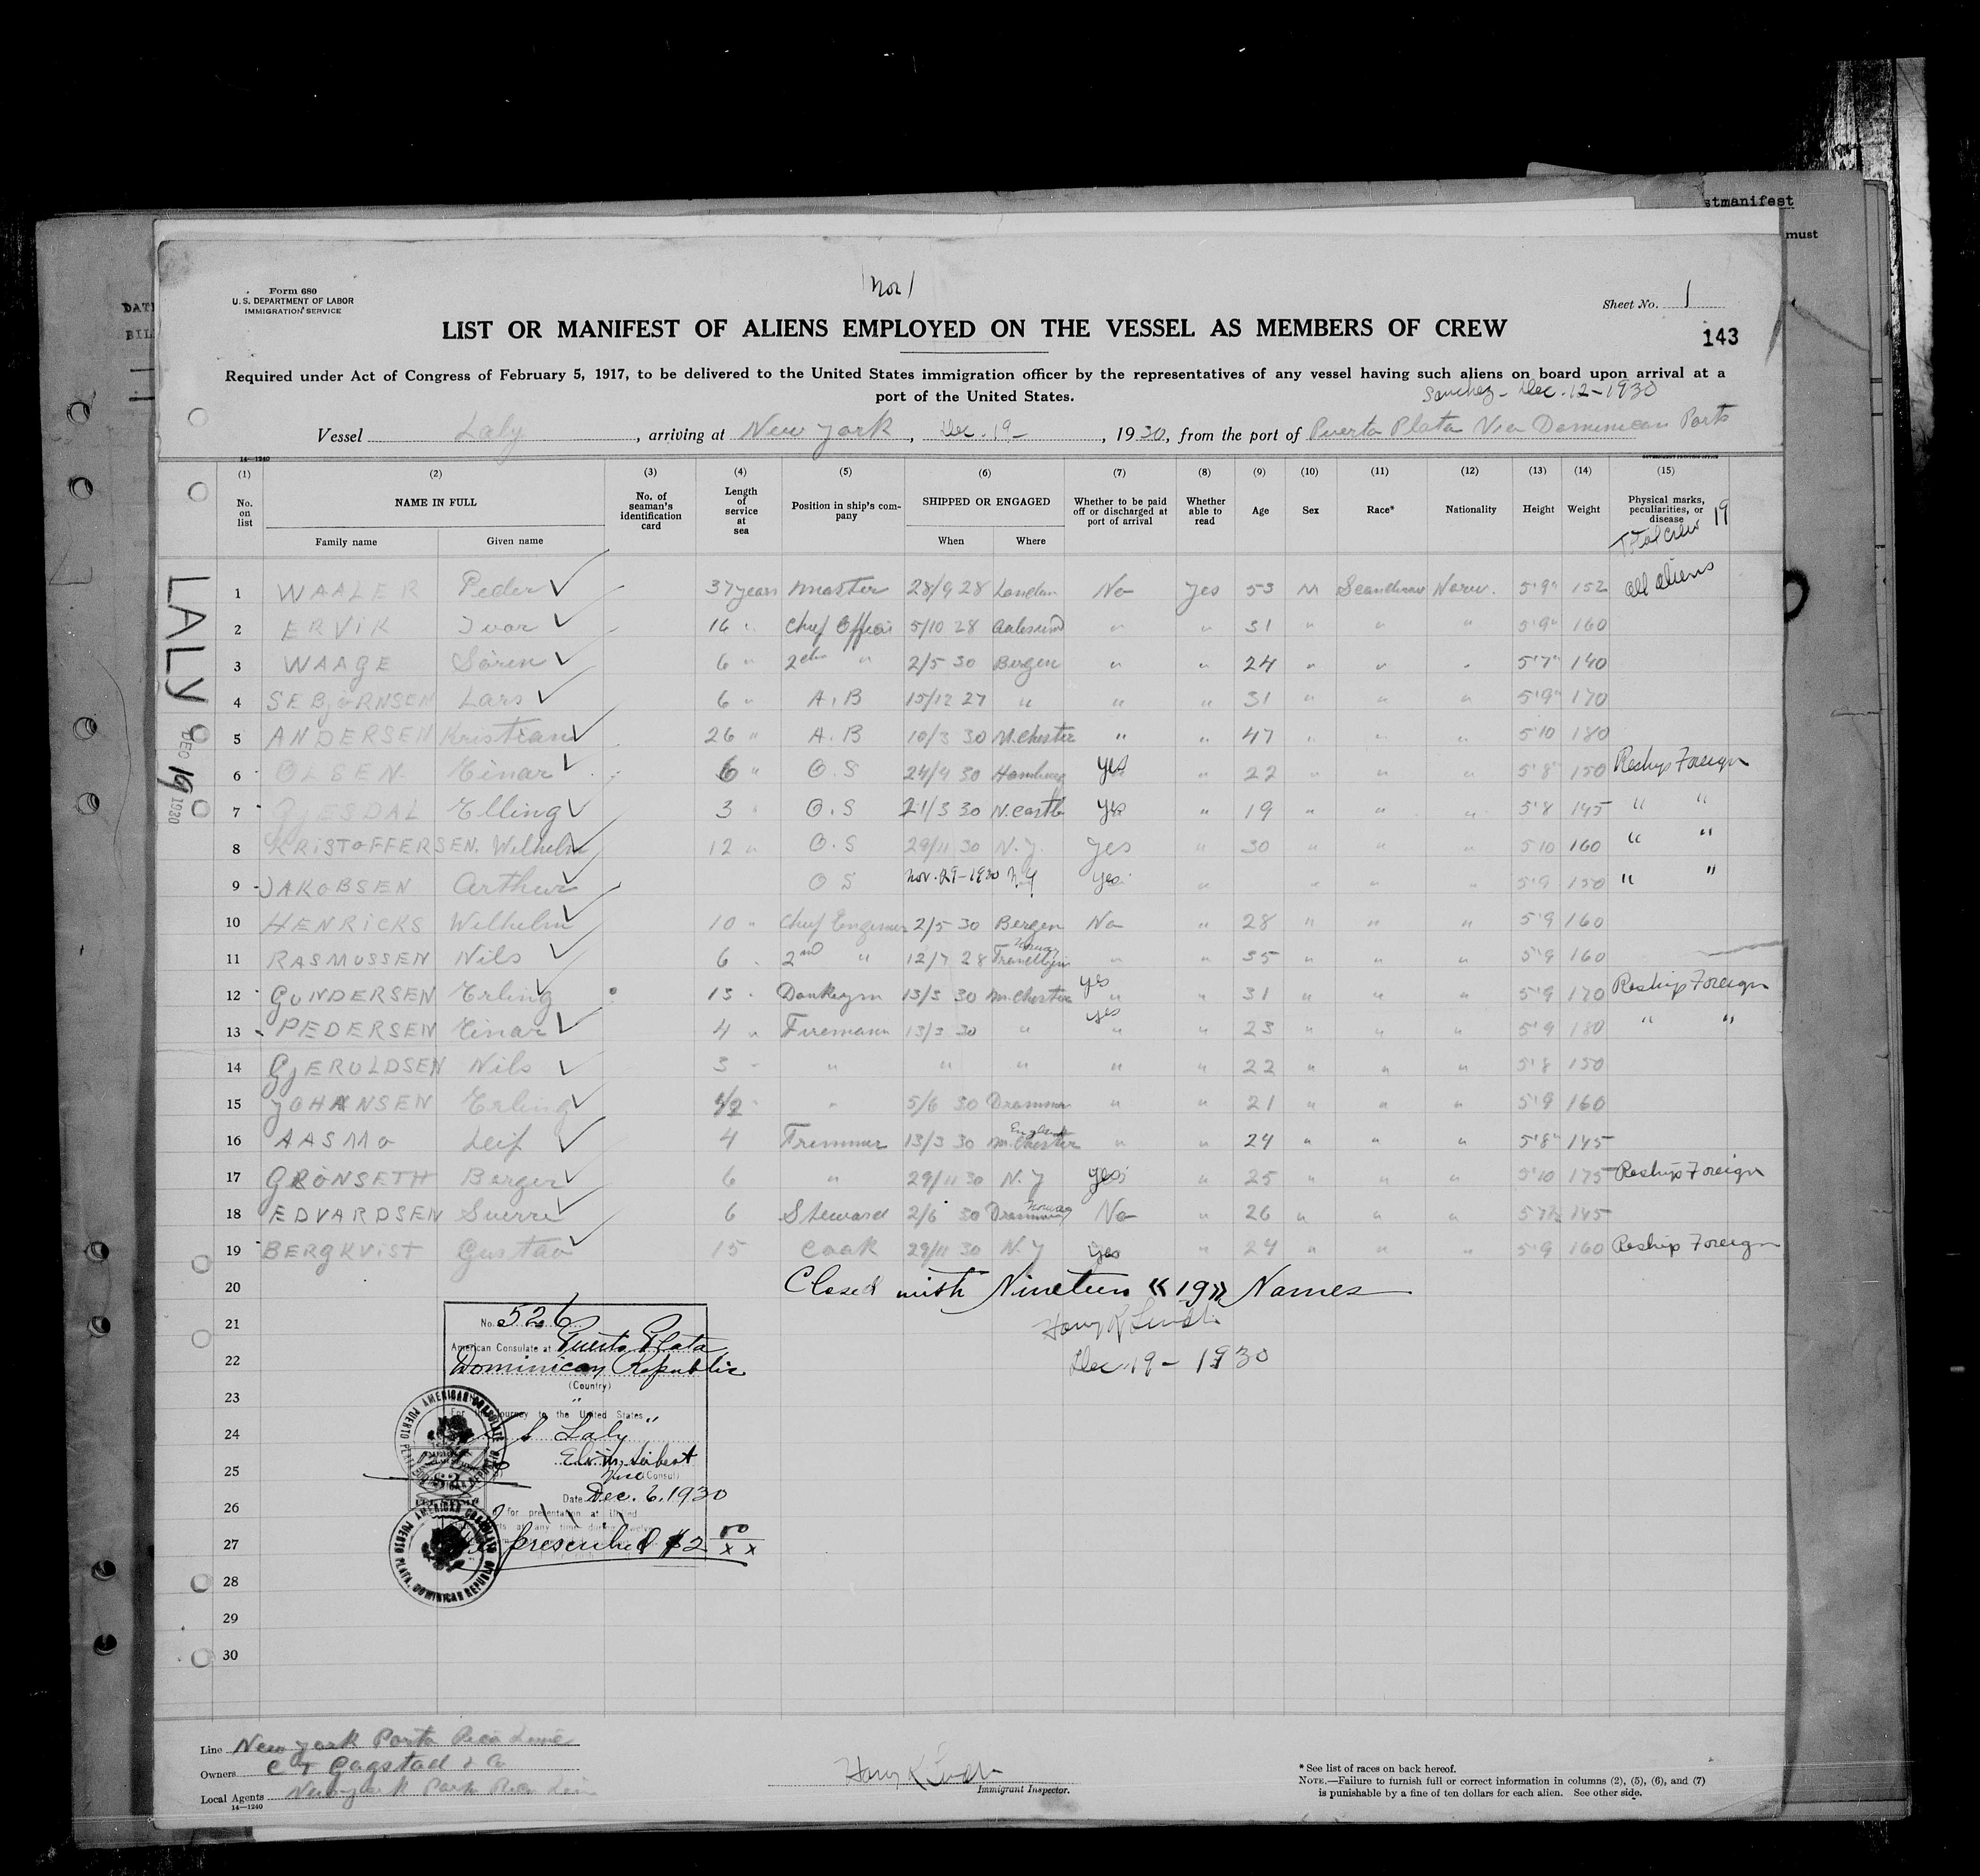 stmanifest
must
DATE
BIL
Form 680
U. S. DEPARTMENT OF LABOR
IMMIGRATION SERVICE
Nor
Sheet No. 1
LIST OR MANIFEST OF ALIENS EMPLOYED ON THE VESSEL AS MEMBERS OF CREW
143
Required under Act of Congress of February 5, 1917, to be delivered to the United States immigration officer by the representatives of any vessel having such aliens on board upon arrival at a
port of the United States.
Sanchez - Dec. 12 - 1930
Vessel Laly, arriving at New York, Dec. 19 -, 1930, from the port of Puerto Plata Via Dominican Ports
14—1240
(1) (2) (3) (4) (5) (6) (7) (8) (9) (10) (11) (12) (13) (14) (15)
No. on list NAME IN FULL No. of seaman's identification card Length of service at sea Position in ship's company SHIPPED OR ENGAGED Whether to be paid off or discharged at port of arrival Whether able to read Age Sex Race* Nationality Height Weight Physical marks, peculiarities, or disease
Family name Given name When Where
Total crew 19
LALY
DEC 19 1930
1 WAALER Peder 37 years Master 28/9 28 London No Yes 53 M Scandinav Norw. 5'9" 152 all aliens
2 ERVIK Ivar 16 " Chief Officer 5/10 28 Aalesund " " 31 " " " 5'9" 160
3 WAAGE Sören 6 " 2nd " 2/5 30 Bergen " " 24 " " " 5'7" 140
4 SEBJÖRNSEN Lars 6 " A.B 15/12 27 " " " 31 " " " 5'9" 170
5 ANDERSEN Kristian 26 " A.B 10/3 30 M.Chester " " 47 " " " 5'10 180
6 OLSEN Einar 6 " O.S 24/9 30 Hamburg yes " 22 " " " 5'8" 150 Reship Foreign
7 GJESDAL Elling 3 " O.S 21/3 30 N.castle yes " 19 " " " 5'8 145 " "
8 KRISTOFFERSEN. Wilhelm 12 " O.S 29/11 30 N.Y. yes " 30 " " " 5'10 160 " "
9 JAKOBSEN Arthur O S Nov. 29-1930 N.Y yes " " " " 5'9 150 " "
10 HENRICKS Wilhelm 10 " Chief Engineer 2/5 30 Bergen No " 28 " " " 5'9 160
11 RASMUSSEN Nils 6 " 2nd " 12/7 28 " " 35 " " " 5'9 160
12 GUNDERSEN Erling 13 " Donkeym 13/3 30 M.Chester yes " 31 " " " 5'9 170 Reship Foreign
13 PEDERSEN Einar 4 " Firemann 13/3 30 " yes " 23 " " " 5'9 180 " "
14 GJERULDSEN Nils 3 " " " " " " 22 " " " 5'8 150
15 JOHANSEN Erling 1/2 " " 5/6 30 Drammen " " 21 " " " 5'9 160
16 AASMO Leif 4 Trimmer 13/3 30 M.Chester England " " 24 " " " 5'8" 145
17 GRÖNSETH Berger 6 " 29/11 30 N.Y yes " 25 " " " 5'10 175 Reship Foreign
18 EDVARDSEN Sverre 6 Steward 2/6 30 Drammen Norway No " 26 " " " 5'7½ 145
19 BERGKVIST Gustav 15 Cook 29/11 30 N.Y yes " 24 " " " 5'9 160 Reship Foreign
20 Closed with Nineteen «19» Names
21
22 Dec. 19 - 1930
23
24
25
26
27
28
29
30
No. 526
American Consulate at Puerto Plata
Dominican Republic
(Country)
For the journey to the United States
S/S "Laly"
Vice (Consul)
Date Dec. 6, 1930
for presentation at United
prescribed $2 00/xx
AMERICAN CONSULATE
PUERTO PLATA, DOMINICAN REPUBLIC
Line New York Porto Rico Line
Owners C T Gogstad & Co
Local Agents New York Porto Rico Line
14—1240
Immigrant Inspector.
* See list of races on back hereof.
NOTE.—Failure to furnish full or correct information in columns (2), (5), (6), and (7)
is punishable by a fine of ten dollars for each alien. See other side.